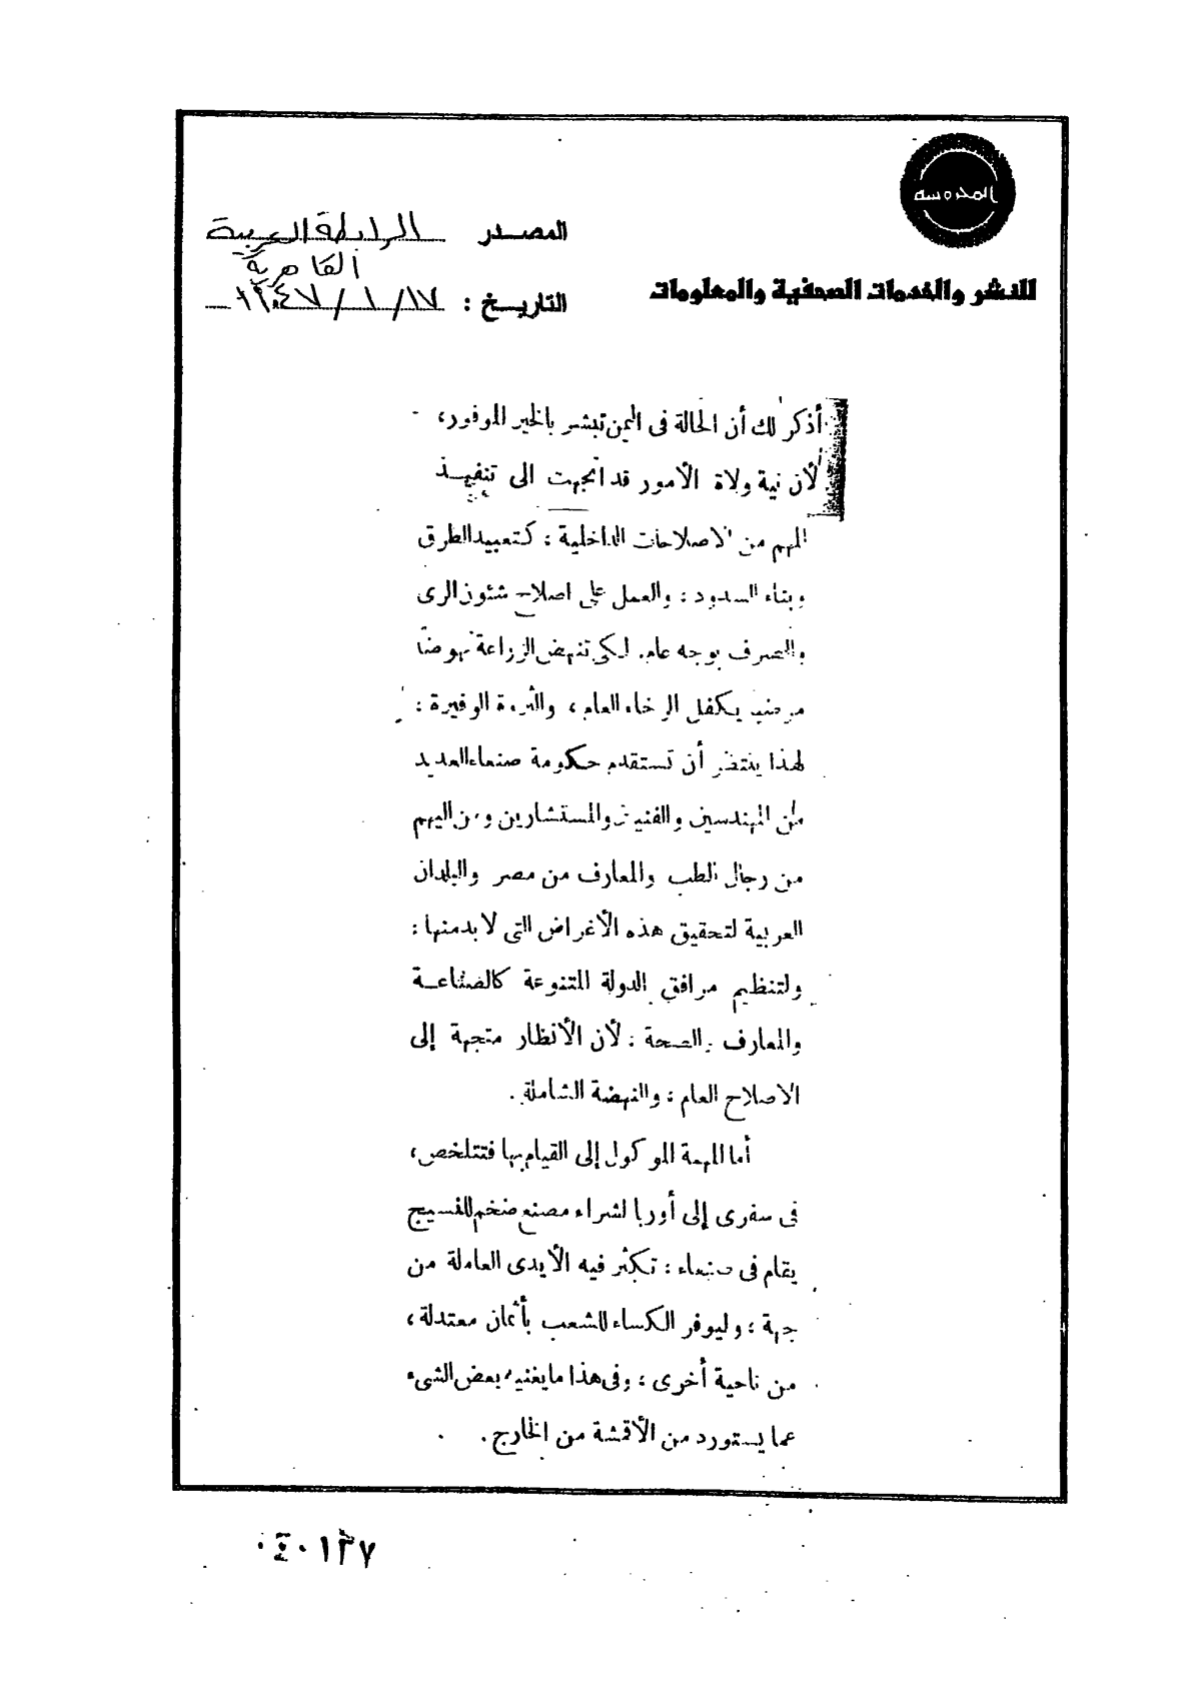 المحروسه
للنشر والخدمات الصحفية والمعلومات
المصدر الرابطة العربية
القاهرية
التاريخ : ١٧/ ١/ ١٩٤٧
أذكر لك أن الحالة فى اليمن تبشر بالخير الموفور،
لأن نية ولاة الأمور قد اتجهت الى تنفيذ
المهم من الاصلاحات الداخلية : كتعبيد الطرق
وبناء السدود : والعمل على اصلاح شئون الرى
والصرف بوجه عام. لكى تنهض الزراعة نهوضا
يكفل الرخاء العام، والثروة الوفيرة :
لهذا ينتظر أن تستقدم حكومة صنعاء العديد
من المهندسين والفنيين والمستشارين ومن اليهم
من رجال الطب والمعارف من مصر والبلدان
العربية لتحقيق هذه الأغراض التى لا بد منها :
ولتنظيم مرافق الدولة المتنوعة كالصناعة
والمعارف والصحة : لأن الأنظار متجهة إلى
الاصلاح العام : والنهضة الشاملة.
أما المهمة الموكول إلى القيام بها فتتلخص،
فى سفرى إلى أوربا لشراء مصنع ضخم للنسيج
يقام فى صنعاء : تكثر فيه الأيدى العاملة من
جهة : وليوفر الكساء للشعب بأثمان معتدلة،
من ناحية أخرى : وفى هذا ما يغنيه بعض الشىء
عما يستورد من الأقمشة من الخارج.
٠٤٠١٣٧